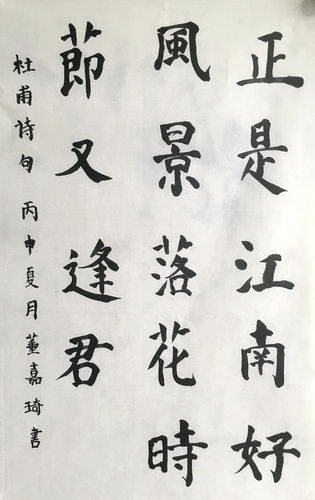 正是江南好
風景落花時
節又逢君
杜甫诗句 丙申夏月董嘉琦書